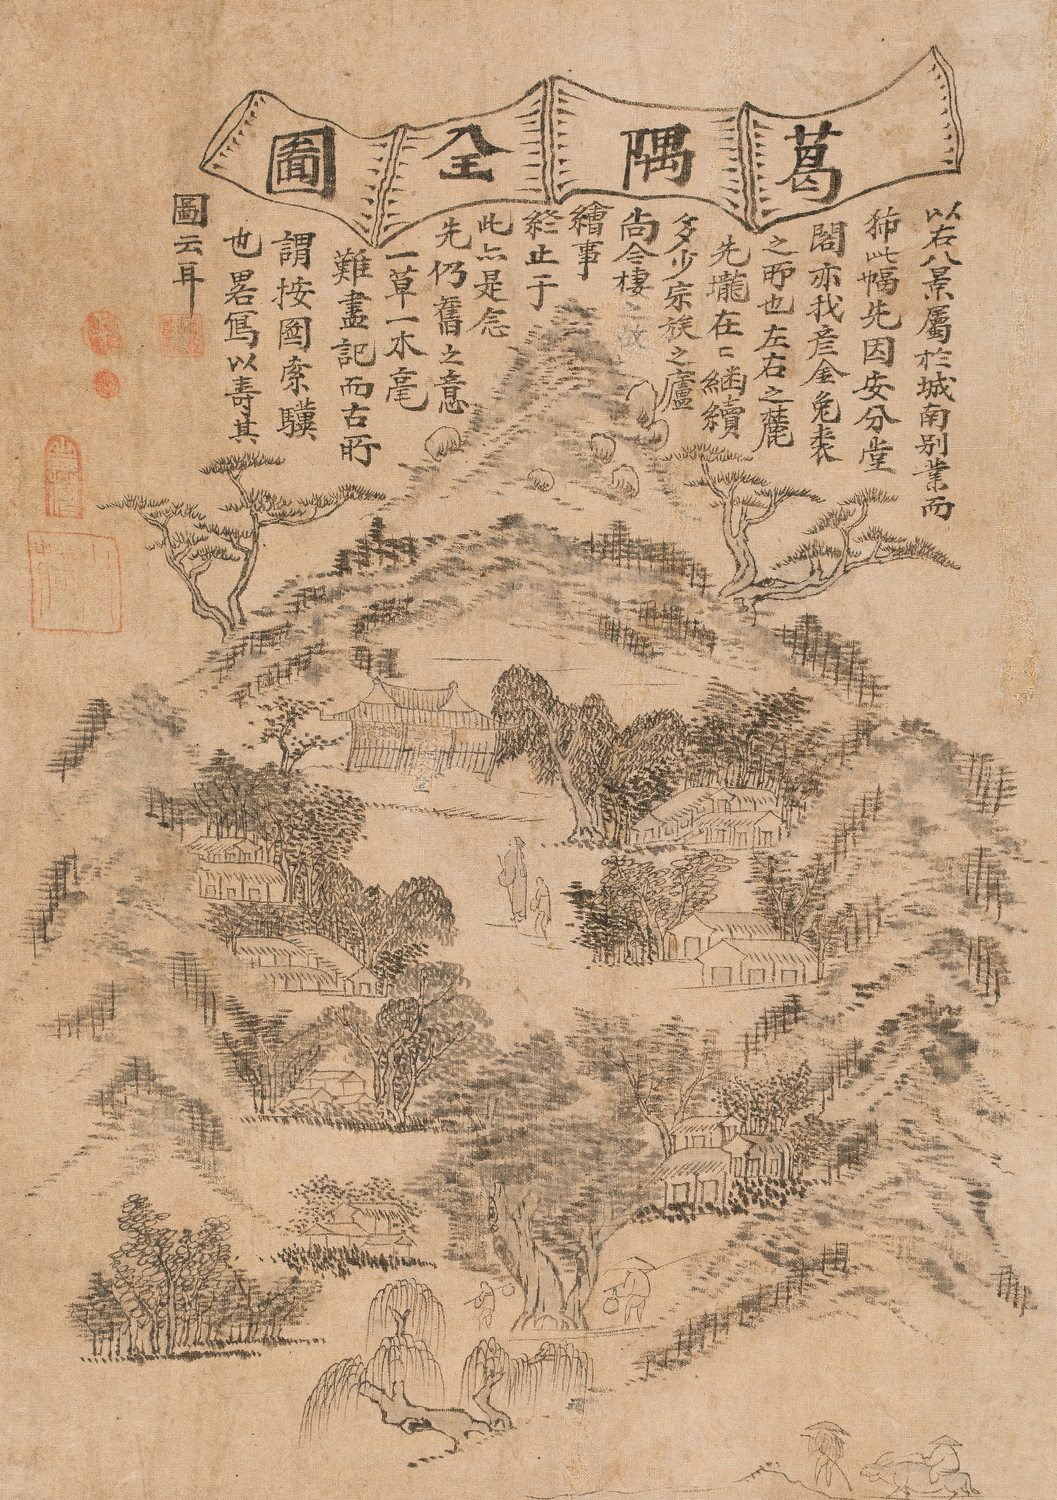 葛隅全圖
以右八景屬於城南別業而
此幅先因安分堂
閣亦我彦金兔裘
之所也左右之麓
先壠在〻繼續
多少宗族之廬
尚今棲之故
繪事
終止于
此亦是念
先仍舊之意
一草一木毫
難盡記而古所
謂按圖索驥
也畧寫以壽其
圖云耳